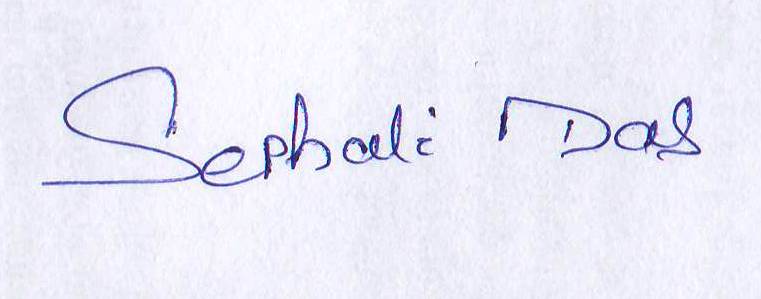 Sephali Das